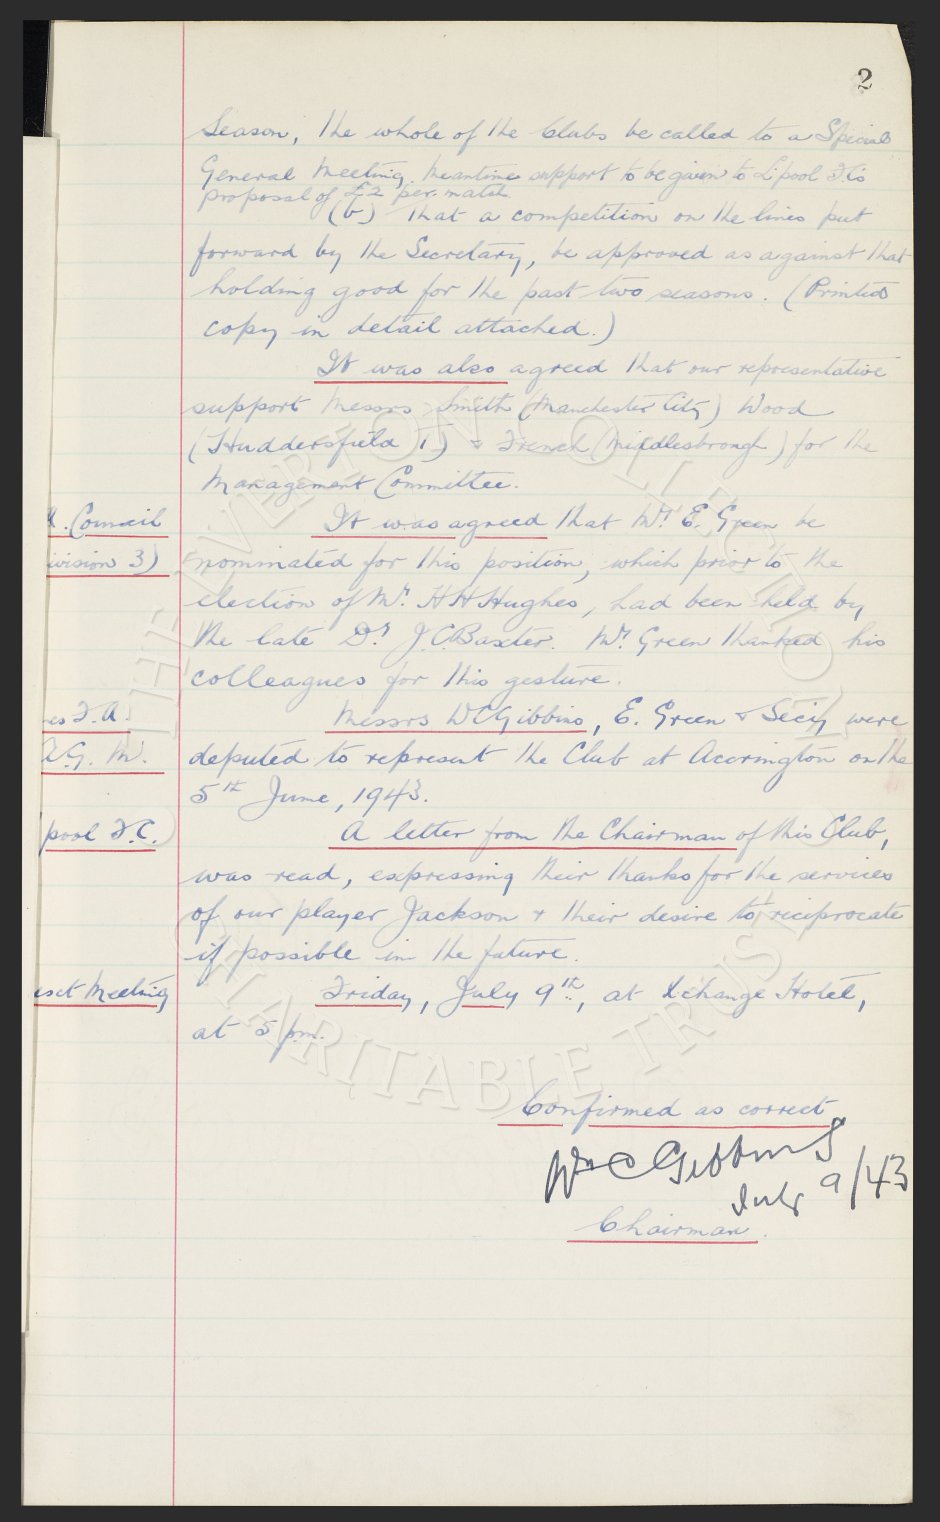 2
Season, the whole of the Clubs be called to a Special
General Meeting. Meantime support to be given to L'pool F.C's
proposal of £2 per match.
(b) That a competition on the lines put
forward by the Secretary, be approved as against that
holding good for the past two seasons. (Printed
copy in detail attached.)
It was also agreed that our representative
support Messrs Smith (Manchester City) Wood
(Huddersfield T) & French (Middlesbrough) for the
Management Committee.
A. Council
It was agreed that Mr. E. Green be
ivision 3)
nominated for this position, which prior to the
election of Mr. H H Hughes, had been held by
the late Dr. J.C. Baxter. Mr. Green thanked his
colleagues for this gesture.
es F.A.
Messrs W C Gibbins, E. Green & Secy were
A.G.M.
deputed to represent the Club at Accrington on the
5th June, 1943.
pool F.C.
A letter from the Chairman of this Club,
was read, expressing their thanks for the services
of our player Jackson & their desire to reciprocate
if possible in the future.
ext Meeting
Friday, July 9th, at Xchange Hotel,
at 5 pm.
Confirmed as correct
Wm C Gibbins
July 9/43
Chairman.
THE EVERTON COLLECTION
CHARITABLE TRUST